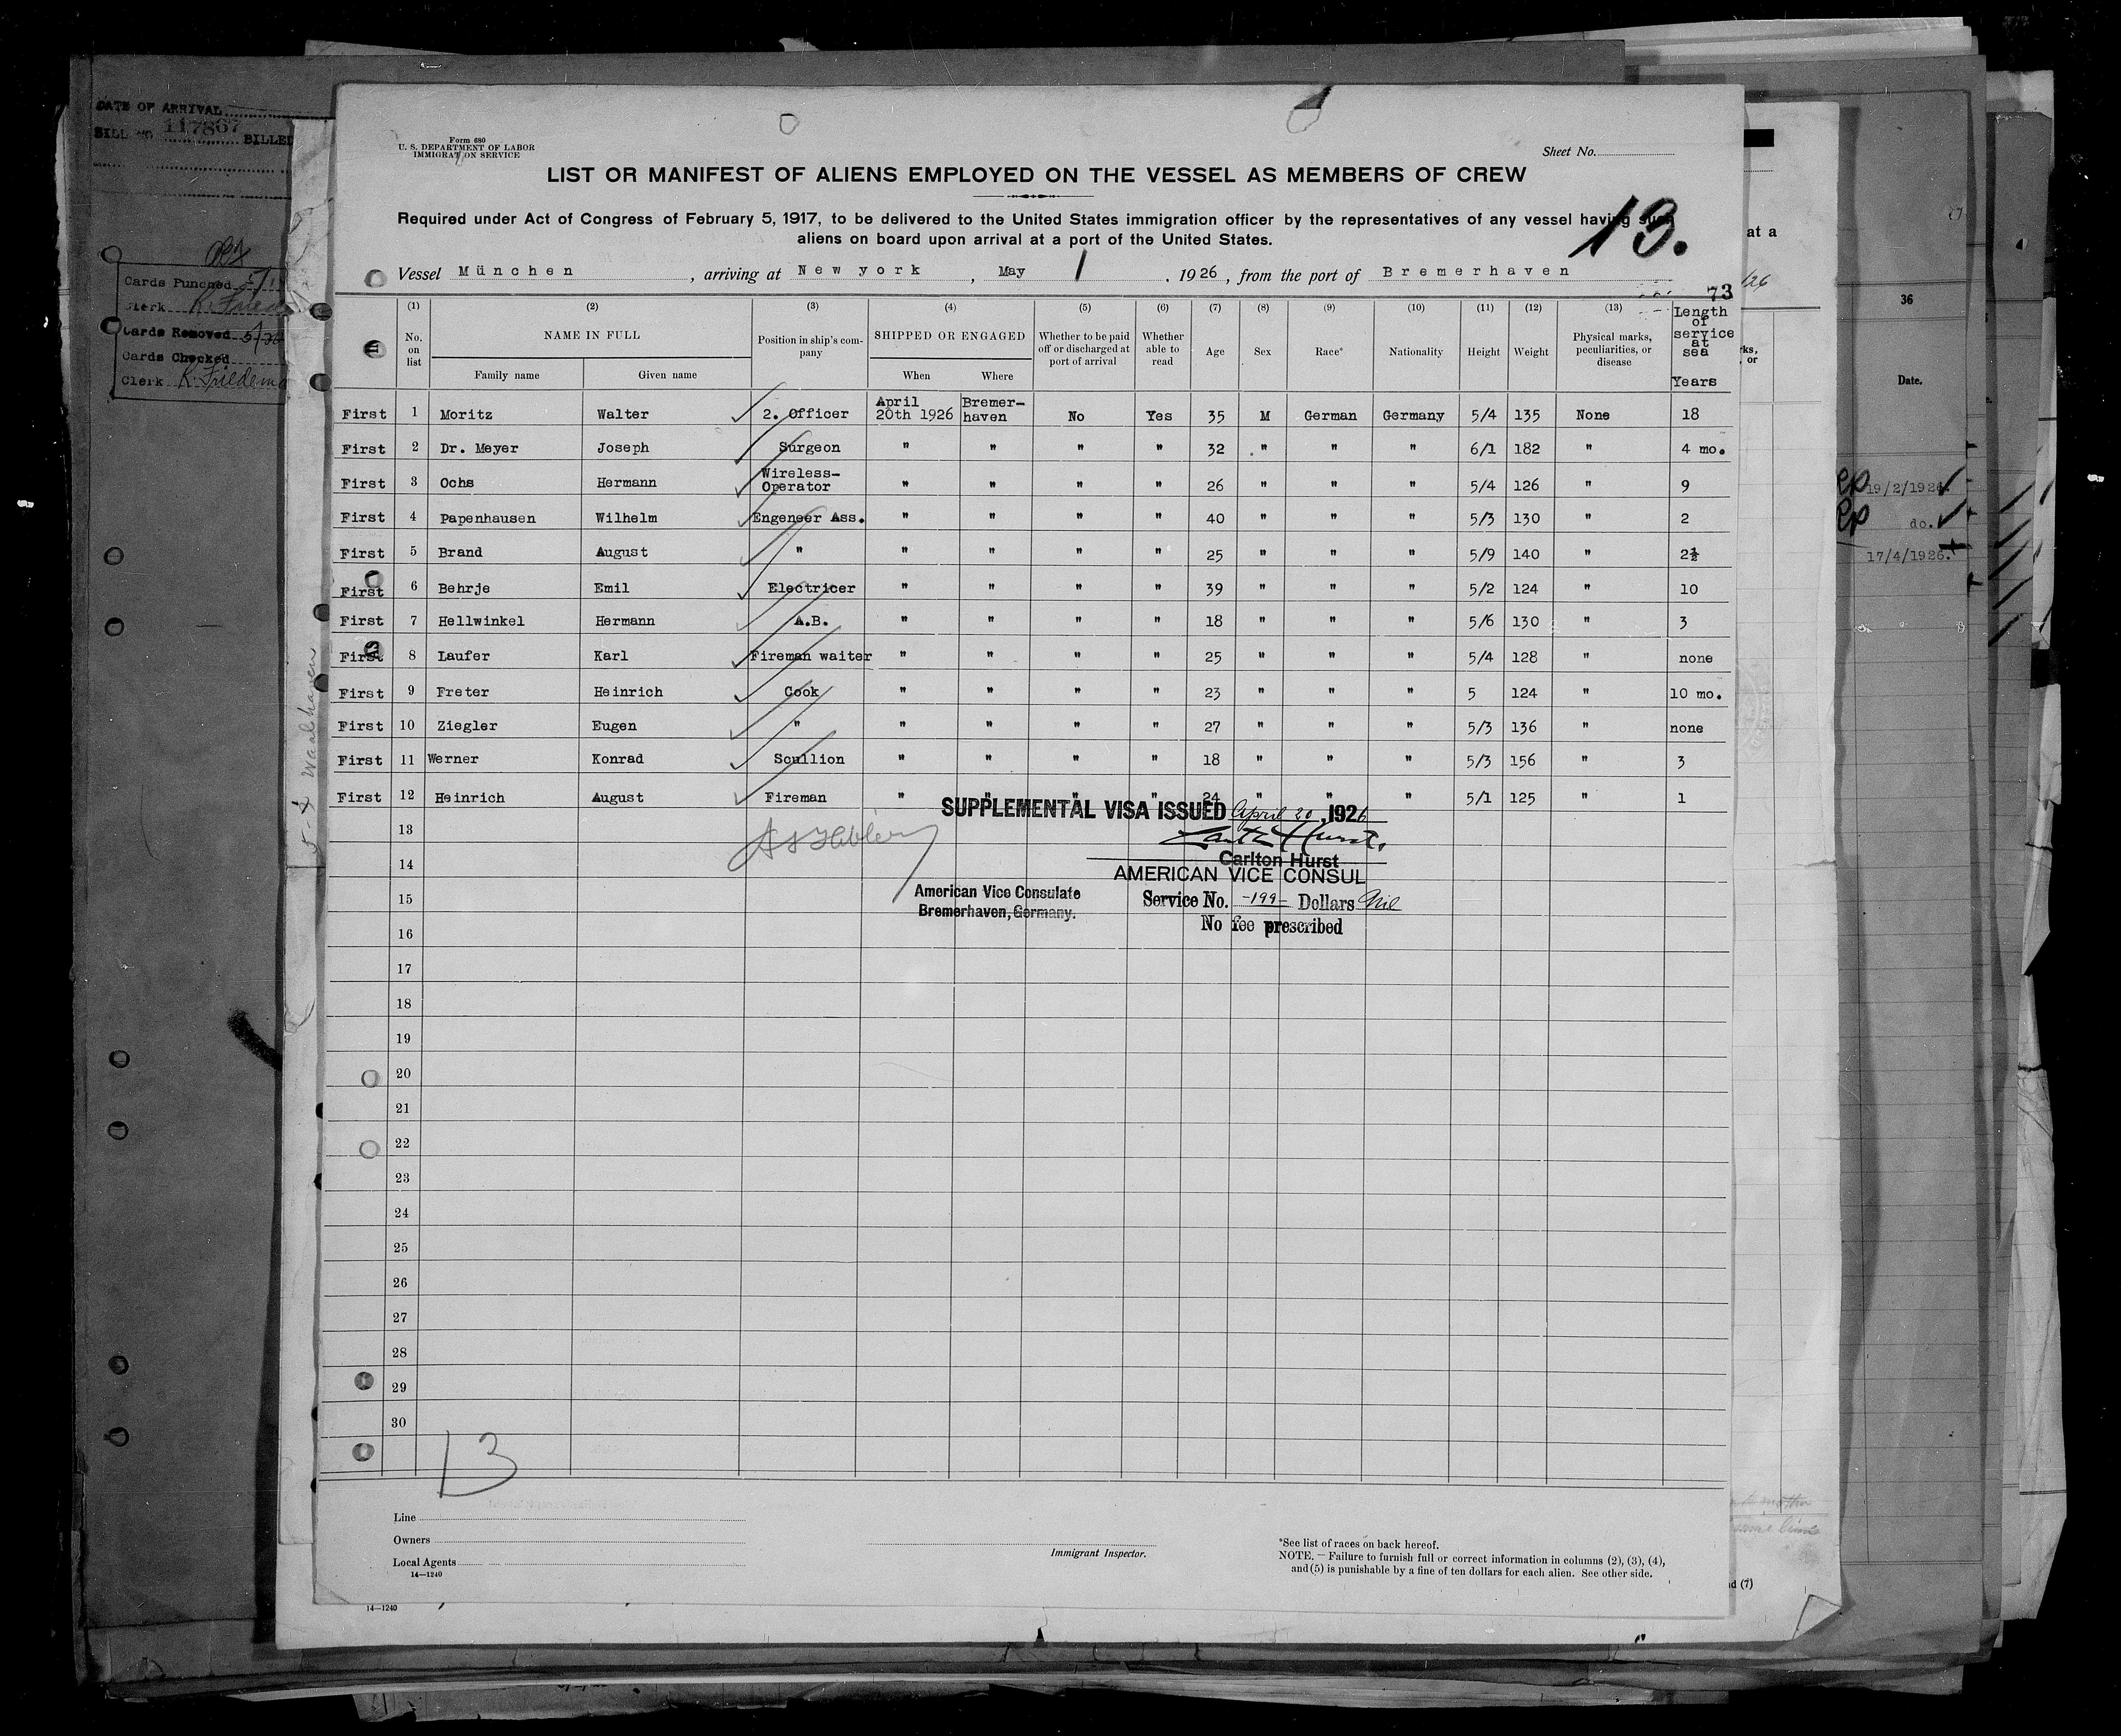 DATE OF ARRIVAL
BILL NO. 117867 BILLED
Cards Punched
Clerk
Cards Removed
Cards Checked
Clerk
Form 680
U. S. DEPARTMENT OF LABOR
IMMIGRATION SERVICE
Sheet No.
LIST OR MANIFEST OF ALIENS EMPLOYED ON THE VESSEL AS MEMBERS OF CREW
Required under Act of Congress of February 5, 1917, to be delivered to the United States immigration officer by the representatives of any vessel having such
aliens on board upon arrival at a port of the United States.
13.
Vessel München, arriving at New york, May 1, 1926, from the port of Bremerhaven
73
(1) (2) (3) (4) (5) (6) (7) (8) (9) (10) (11) (12) (13)
No. on list NAME IN FULL Family name Given name Position in ship's company SHIPPED OR ENGAGED When Where Whether to be paid off or discharged at port of arrival Whether able to read Age Sex Race* Nationality Height Weight Physical marks, peculiarities, or disease Length of service at sea Years
First 1 Moritz Walter 2. Officer April 20th 1926 Bremer-haven No Yes 35 M German Germany 5/4 135 None 18
First 2 Dr. Meyer Joseph Surgeon " " " " 32 " " " 6/1 182 " 4 mo.
First 3 Ochs Hermann Wireless-Operator " " " " 26 " " " 5/4 126 " 9
First 4 Papenhausen Wilhelm Engeneer Ass. " " " " 40 " " " 5/3 130 " 2
First 5 Brand August " " " " " 25 " " " 5/9 140 " 2½
First 6 Behrje Emil Electricer " " " " 39 " " " 5/2 124 " 10
First 7 Hellwinkel Hermann A.B. " " " " 18 " " " 5/6 130 " 3
First 8 Laufer Karl Fireman waiter " " " " 25 " " " 5/4 128 " none
First 9 Freter Heinrich Cook " " " " 23 " " " 5 124 " 10 mo.
First 10 Ziegler Eugen " " " " " 27 " " " 5/3 136 " none
First 11 Werner Konrad Scullion " " " " 18 " " " 5/3 156 " 3
First 12 Heinrich August Fireman " " " " 24 " " " 5/1 125 " 1
SUPPLEMENTAL VISA ISSUED April 20, 1926
13
14
Carlton Hurst
AMERICAN VICE CONSUL
American Vice Consulate
Bremerhaven, Germany.
15
Service No. -199- Dollars Nil
No fee prescribed
16
17
18
19
20
21
22
23
24
25
26
27
28
29
30
13
Line
Owners
Local Agents
14—1240
Immigrant Inspector.
*See list of races on back hereof.
NOTE. — Failure to furnish full or correct information in columns (2), (3), (4),
and (5) is punishable by a fine of ten dollars for each alien. See other side.
14—1240
at a
/26
ks,
or
d (7)
36
Date.
19/2/1926.
do.
17/4/1926.